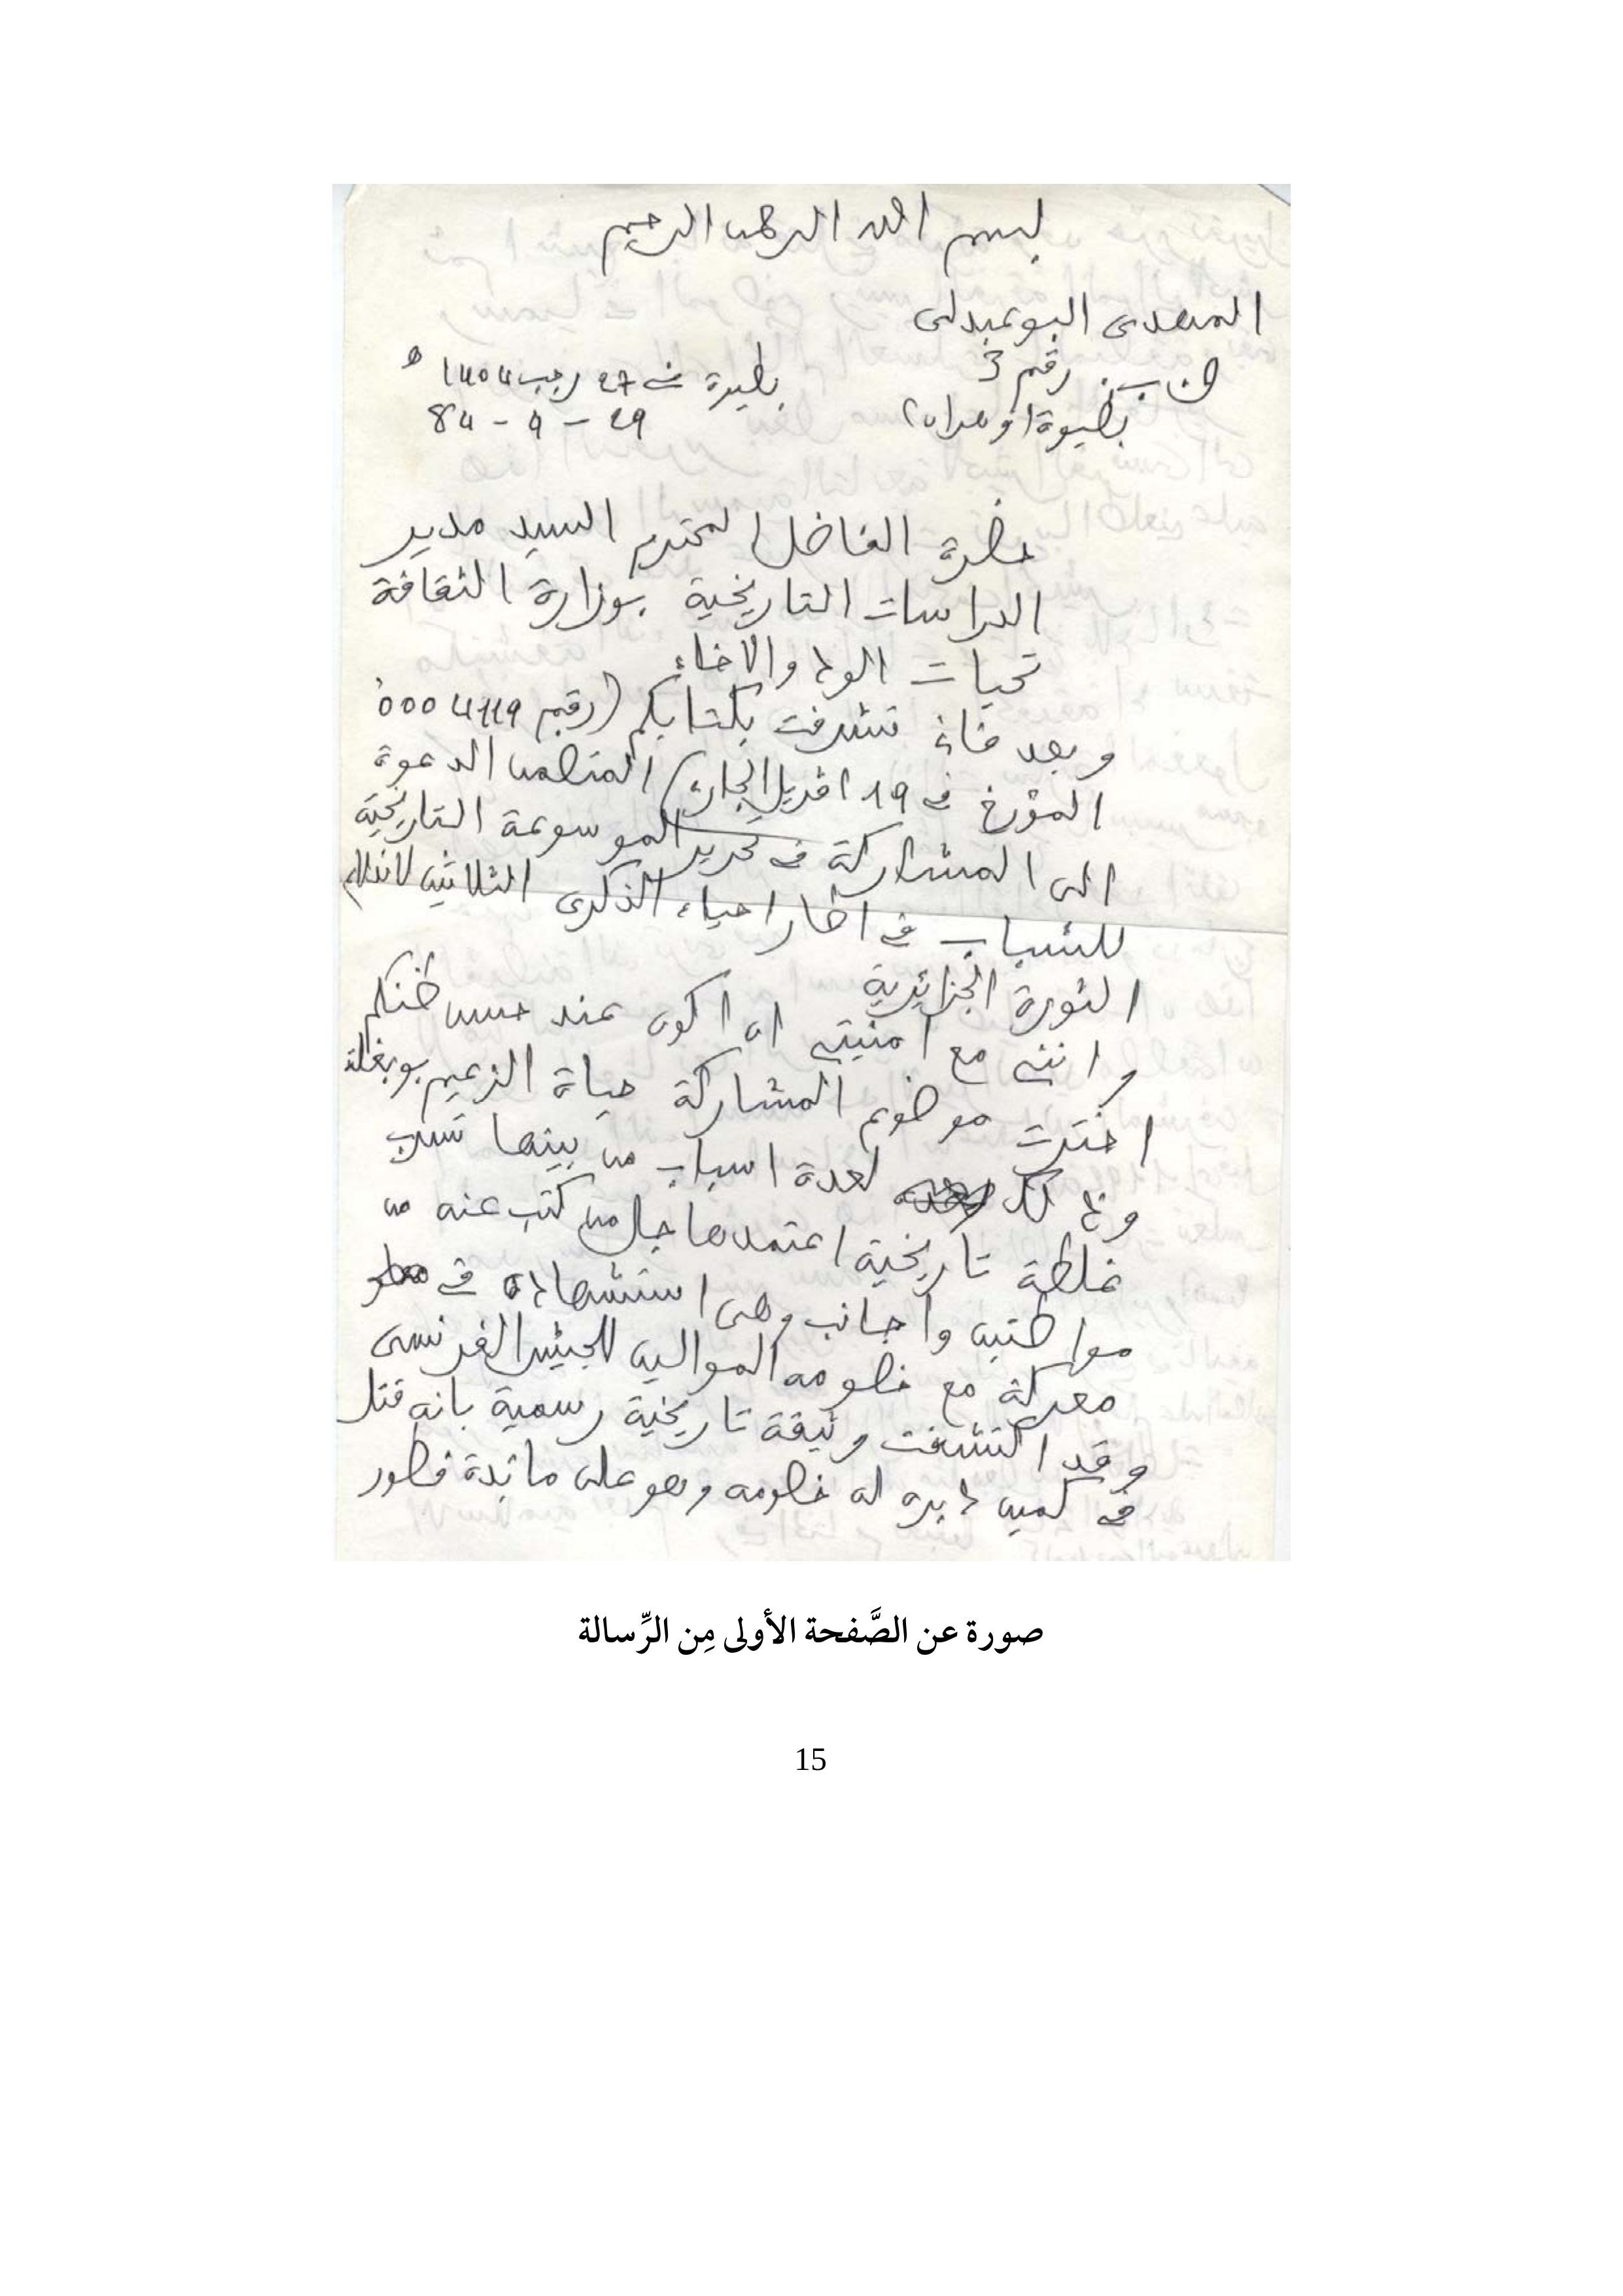 بسم الله الرحمن الرحيم
المهدى البوعبدلى
ص ب. رقم 3
بطيوة (وهران)
بطيوة في 27 رجب 1404 ه
29 - 4 - 84
حضرة الفاضل المحترم السيد مدير
الدراسات التاريخية بوزارة الثقافة
تحيات الود والاخاء
وبعد فانى تشرفت بكتابكم (رقم 0004119
المؤرخ في 19 افريل الجارى) المتضمن الدعوة
الى المشاركة في تحرير الموسوعة التاريخية
للشباب في اطار احياء الذكرى الثلاثين لاندلاع
الثورة الجزائرية
واننى مع امنيتى ان اكون عند حسن ظنكم
اخترت موضوع المشاركة حياة الزعيم بوبغلة
وذلك لعدة اسباب من بينها تسرب
غلطة تاريخية اعتمدها جل من كتب عنه من
مواطنين واجانب وهى استشهاده في
معركة مع خصومه الموالين للجيش الفرنسى
وقد اكتشفت وثيقة تاريخية رسمية بانه قتل
في كمين دبره له خصومه وهو على مائدة فطور
صورة عن الصَّفحة الأولى مِن الرِّسالة
15